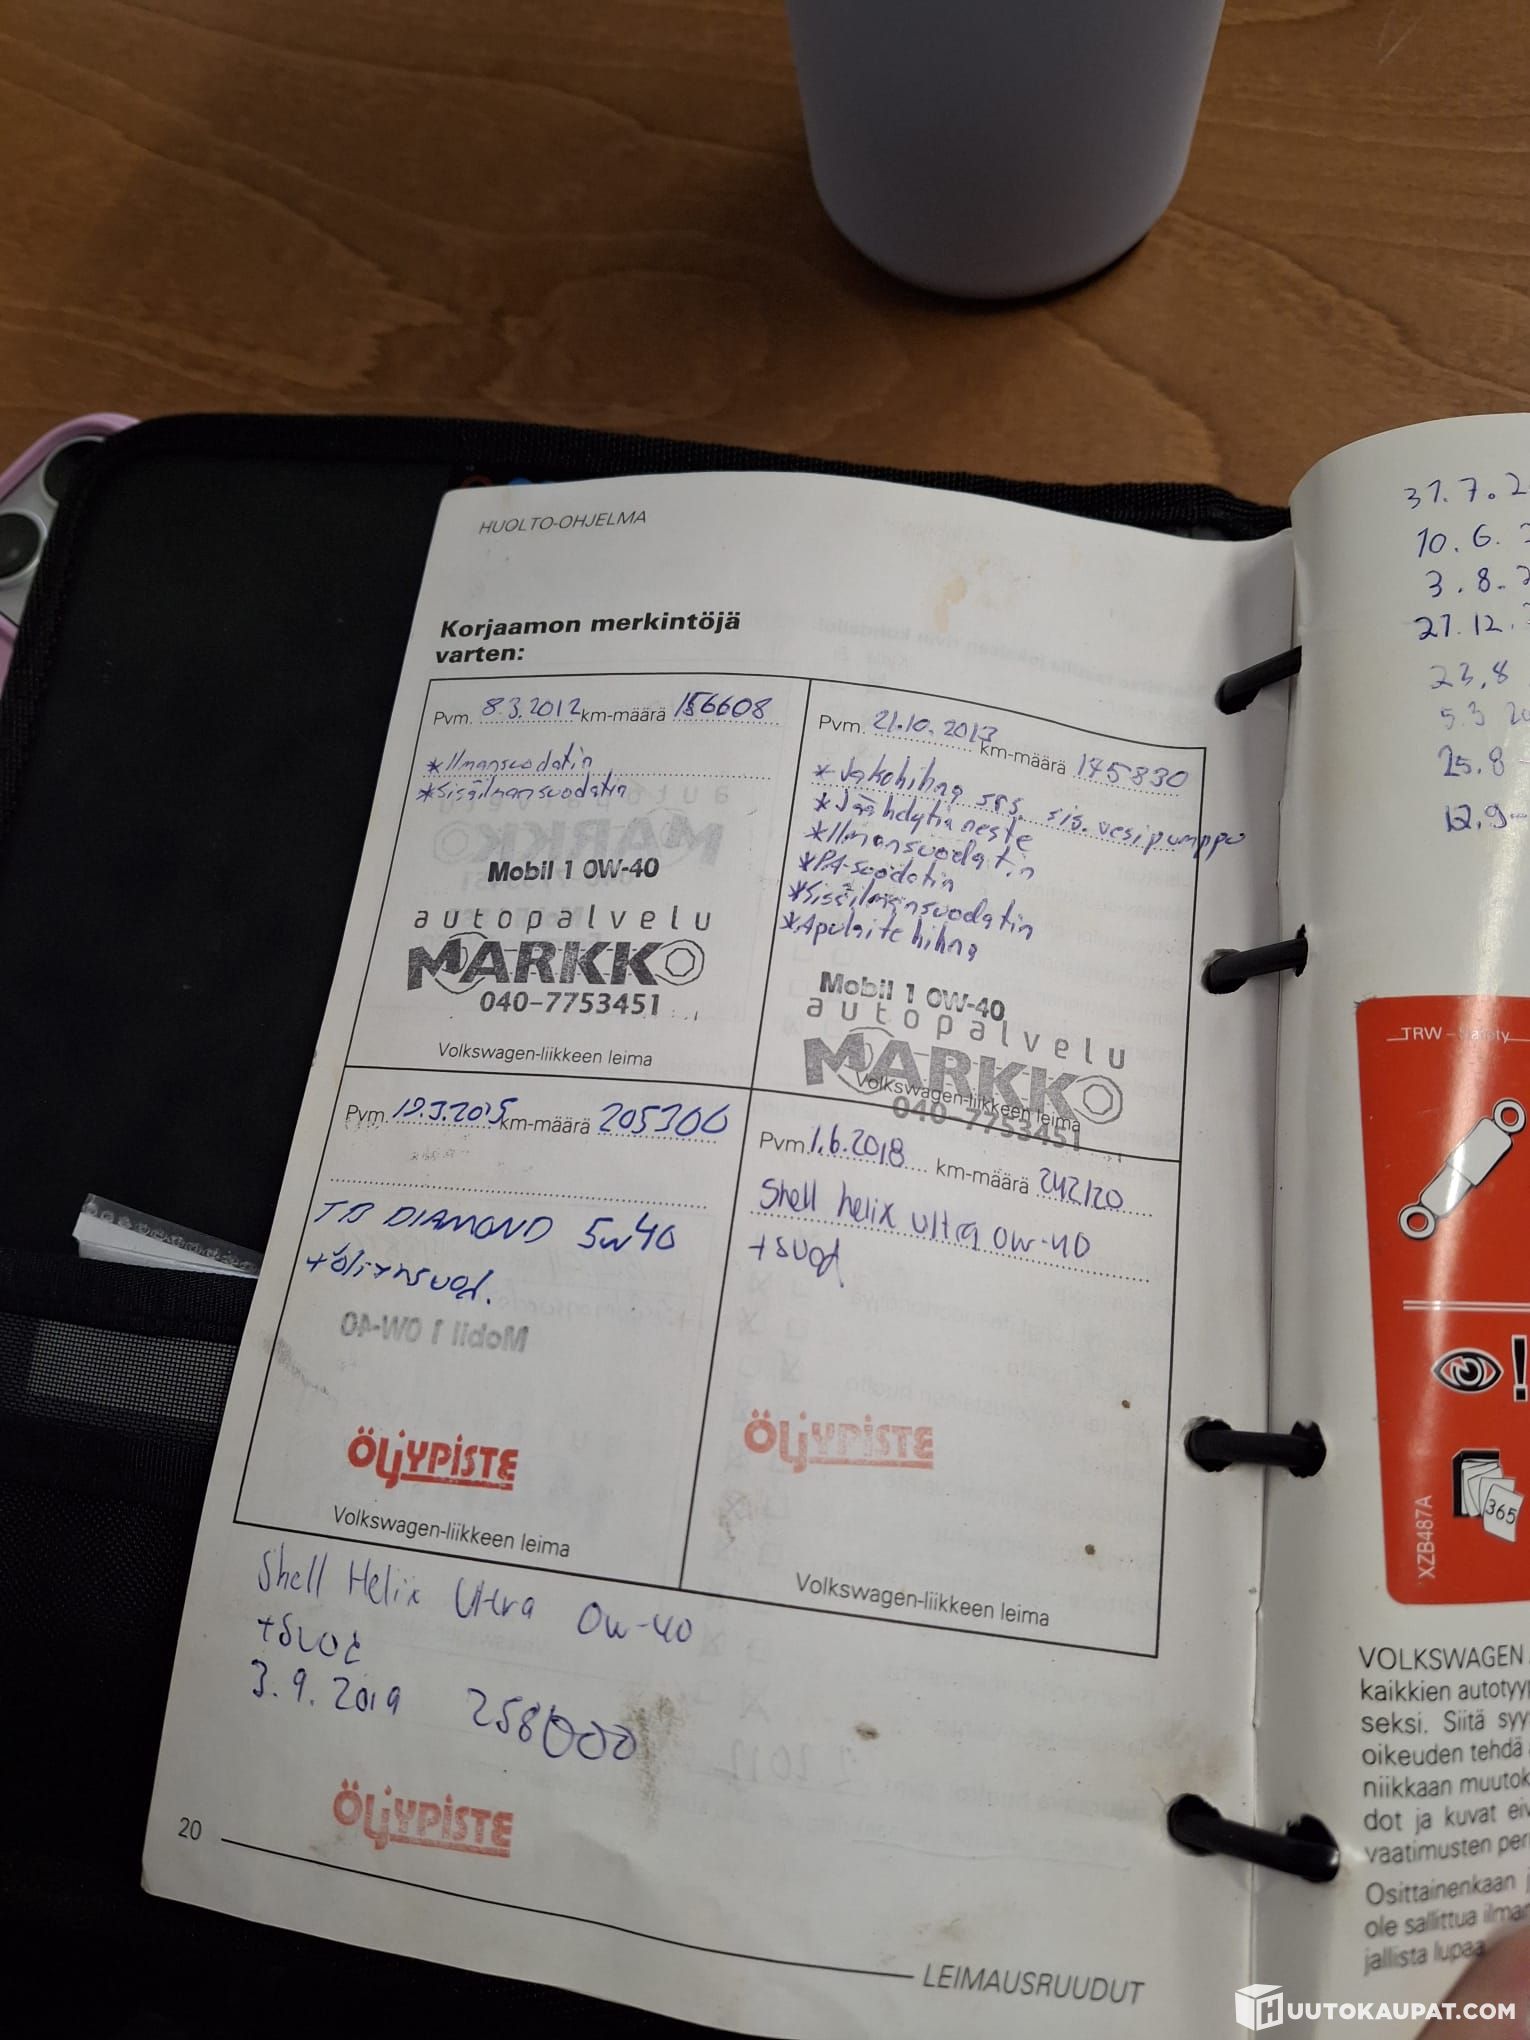 HUOLTO-OHJELMA
Korjaamon merkintöjä
varten:
Pvm. 8.3.2012 km-määrä 156608
*Ilmansuodatin
*Sisäilmansuodatin
Mobil 1 0W-40
autopalvelu
MARKKO
040-7753451
Volkswagen-liikkeen leima
Pvm. 21.10.2013 km-määrä 175830
*Jakohihna srs. sis. vesipumppu
*Jäähdytinneste
*Ilmansuodatin
*PA-suodatin
*Sisäilmansuodatin
*Apulaitehihna
Mobil 1 0W-40
autopalvelu
MARKKO
Volkswagen-liikkeen leima
040-7753451
Pvm. 19.3.2015 km-määrä 205300
TB DIAMOND 5w40
+öljynsuod.
Mobil 1 0W-40
ÖLJYPISTE
Volkswagen-liikkeen leima
Pvm. 1.6.2018 km-määrä 242120
Shell helix ultra 0w-40
+suod
ÖLJYPISTE
Volkswagen-liikkeen leima
Shell Helix Ultra 0w-40
+suod
3.9.2019 258000
ÖLJYPISTE
20
LEIMAUSRUUDUT
31.7.2
10.6.
3.8.2
27.12.
23.8
5.3 20
25.8
12.9
TRW
365
XZB487A
VOLKSWAGEN
kaikkien autotyy
seksi. Siitä syy
oikeuden tehdä
niikkaan muutok
dot ja kuvat eiv
vaatimusten per
Osittainenkaan j
ole sallittua ilman
jallista lupaa
HUUTOKAUPAT.COM